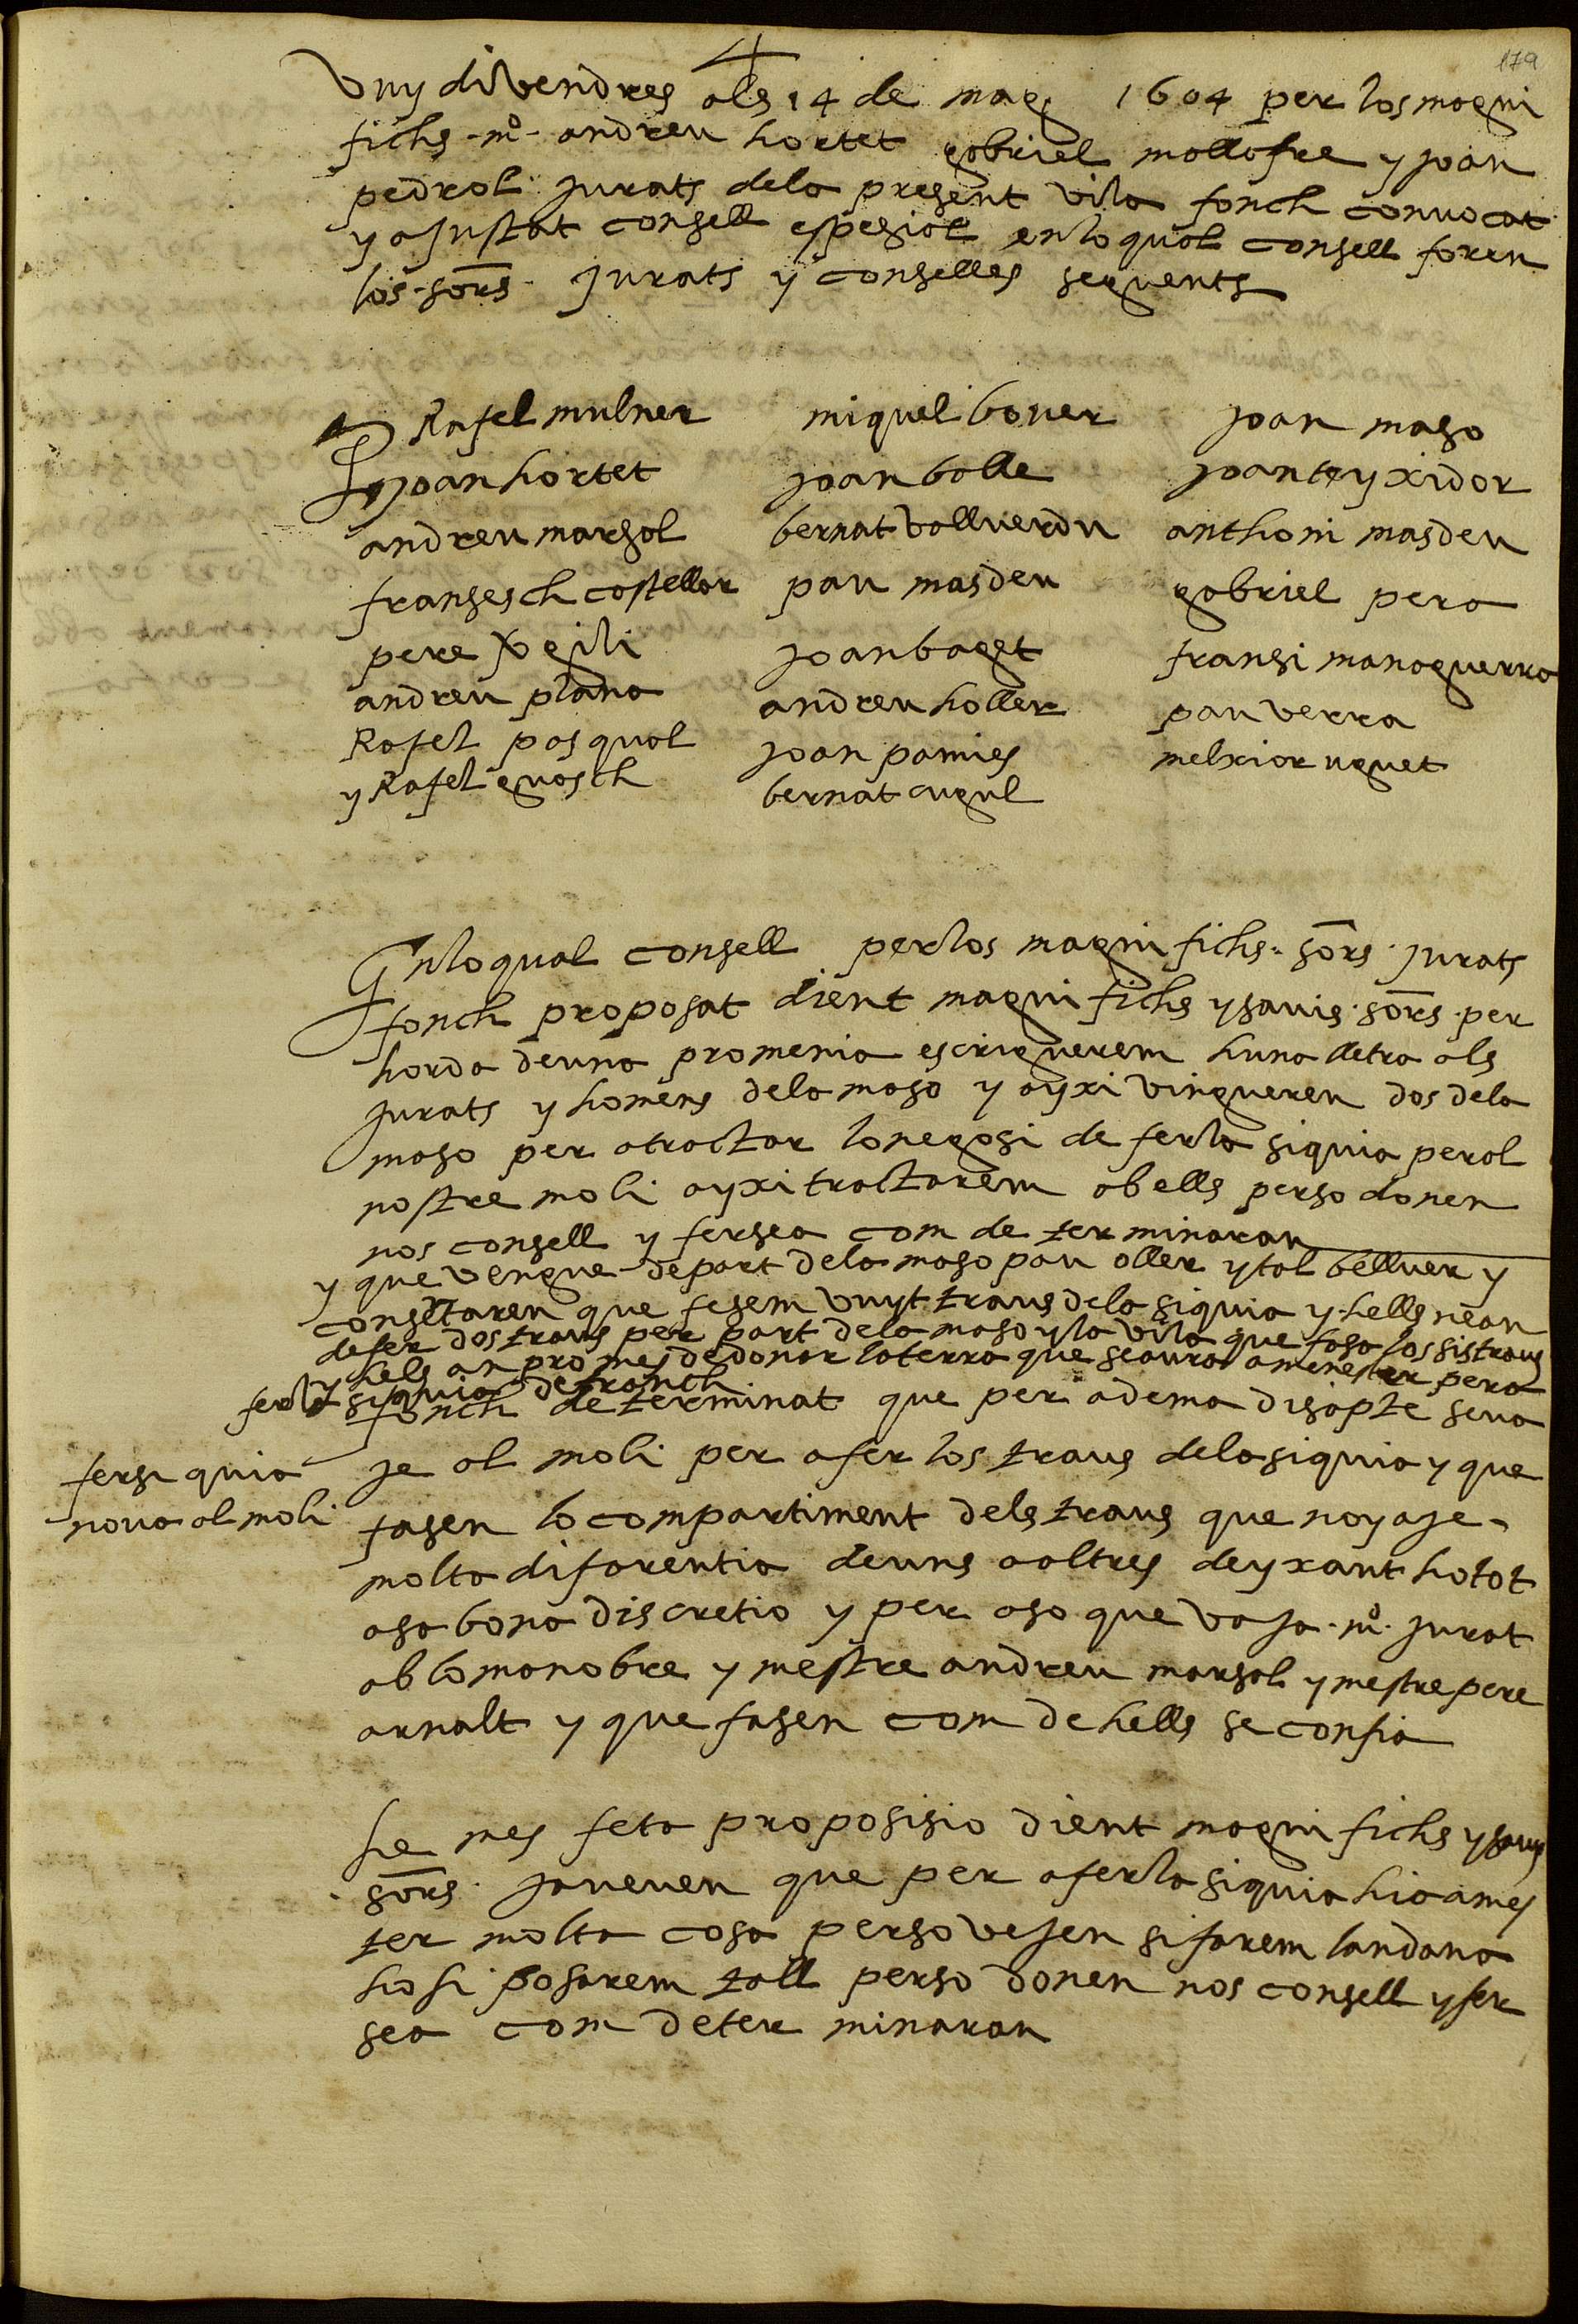 179
Vuy divendres als 14 de mag 1604 per los magni
fichs -mº- andreu hortet gabriel mallafre y joan
pedrol jurats dela present vila fonch convocat
y ajustat consell espesial enlo qual consell foren
los -sors- jurats y conselles seguents
Rafel mulner
joan hortet
andreu marsal
fransesch castellar
pere virgili
andreu plana
Rafel pasqual
y Rafel guasch
miquel bover
joan batle
bernat vallverdu
pau masdeu
joan baget
andreu holler
joan pamies
bernat cugul
joan maso
joan teyxidor
anthoni masdeu
gabriel pera
fransi managuerra
pau verra
melxior uguet
Enlo qual consell per los magnifichs sors jurats
fonch proposat dient magnifichs y savis sors per
horda de una promenia escriguerem huna lletra als
jurats y homens dela maso y ayxi vingueren dos dela
maso per a tractar lo negosi de fer la siquia per al
nostre moli ayxi tractarem ab ells perso donen
nos consell y fersea com determinaran
y que vengue de part dela maso pau oller y tal bellver y
consertaren que fesem vuyt traus dela siquia y hells nean
defer dos traus per part dela maso y la vila que fasa los sis traus
y hels an promes de donar la terra que seaura amenester pera
fer la siquia de franch
fonch determinat que per a dema disapte se va
je al moli per a fer los traus dela siquia y que
fasen lo compartiment dels traus que noy aje
molta diferentia deuns a altres deyxant ho tot
a sa bona discretio y per aso que vaja mº jurat
ab lo manobre y mestre andreu marsal y mestre pere
arnalt y que fasen com de hells se confia
fer siquia
nova al moli
he mes feta proposisio dient magnifichs y savis
sors ja veuen que per a fer la siquia hi a mes
ter molta cosa perso vejen si farem landana
ho hi posarem tall perso donen nos consell y fer
sea com determinaran